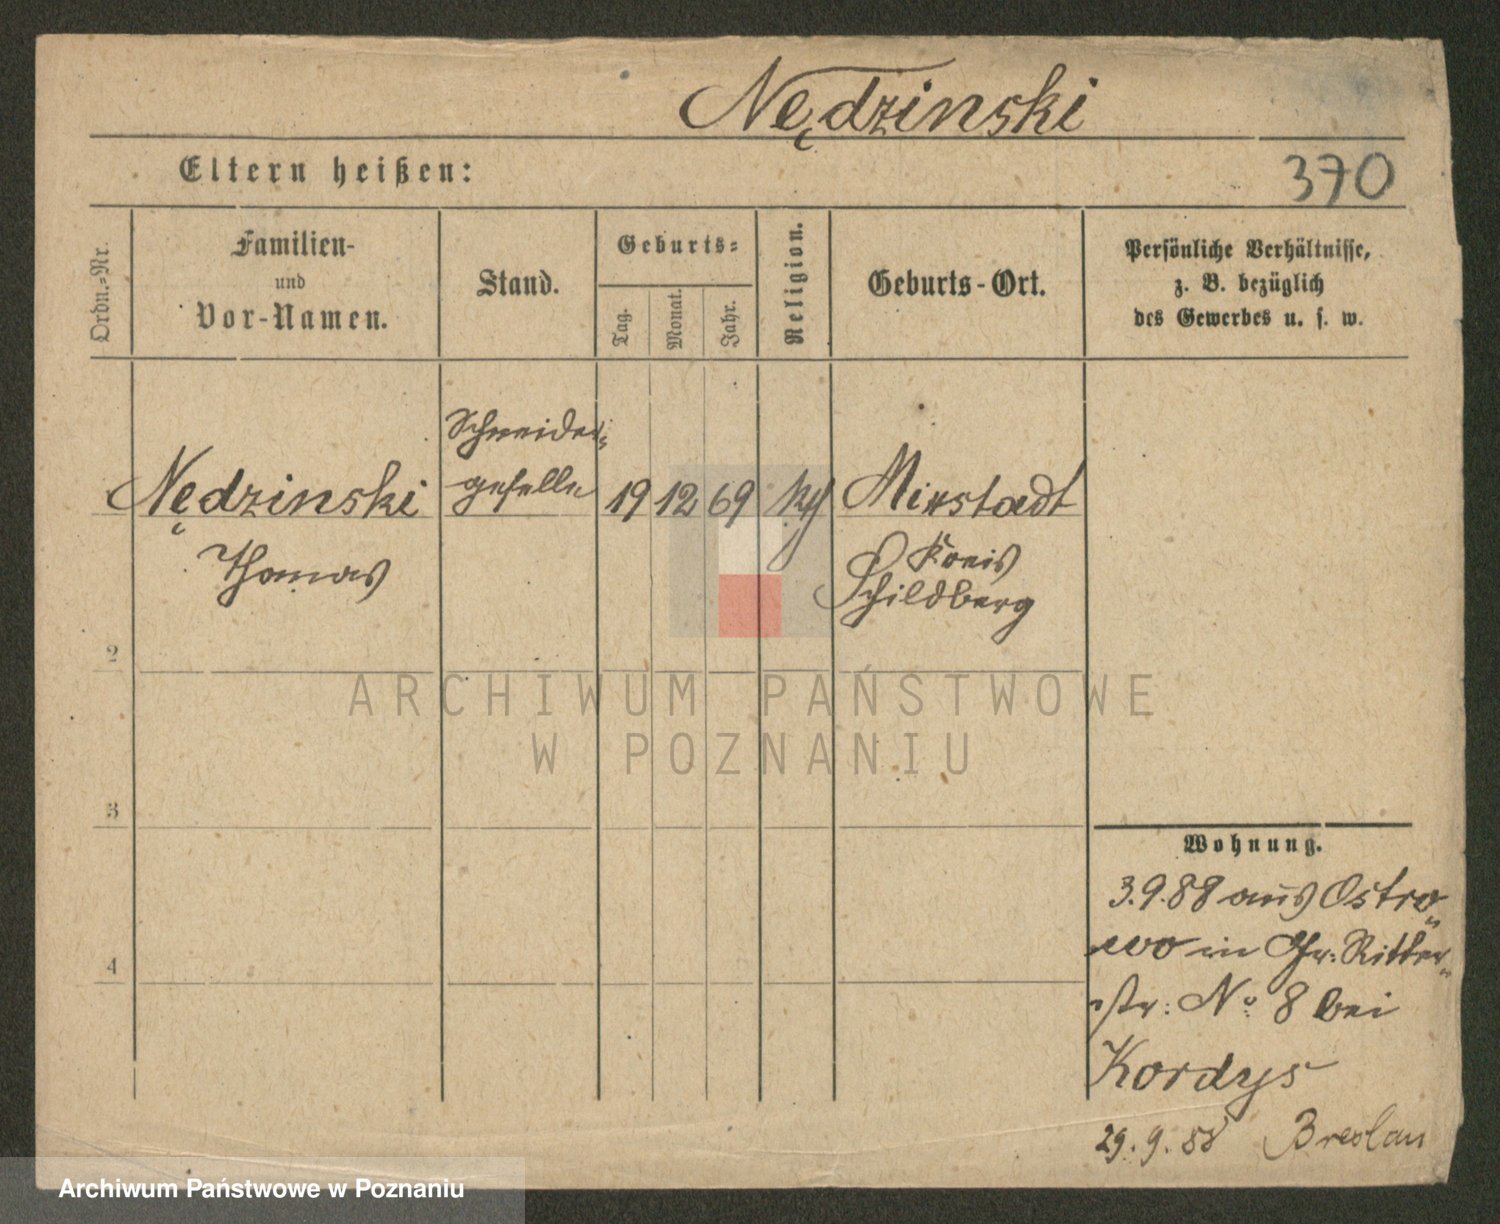 Nędzinski
Eltern heißen:
370
Ordn.-Nr.
Familien-
und
Vor-Namen.
Stand.
Geburts-
Tag.
Monat.
Jahr.
Religion.
Geburts-Ort.
Persönliche Verhältnisse,
z. B. bezüglich
des Gewerbes u. s. w.
Nędzinski
Thomas
Schneider-
geselle
19 12 69
Mixstadt
Kreis
Schildberg
2
3
4
Wohnung.
3.9.88 aus Ostro-
wo in Gr. Ritter-
str: No 8 bei
Kordys
29.9.88 Breslau
ARCHIWUM PAŃSTWOWE
W POZNANIU
Archiwum Państwowe w Poznaniu